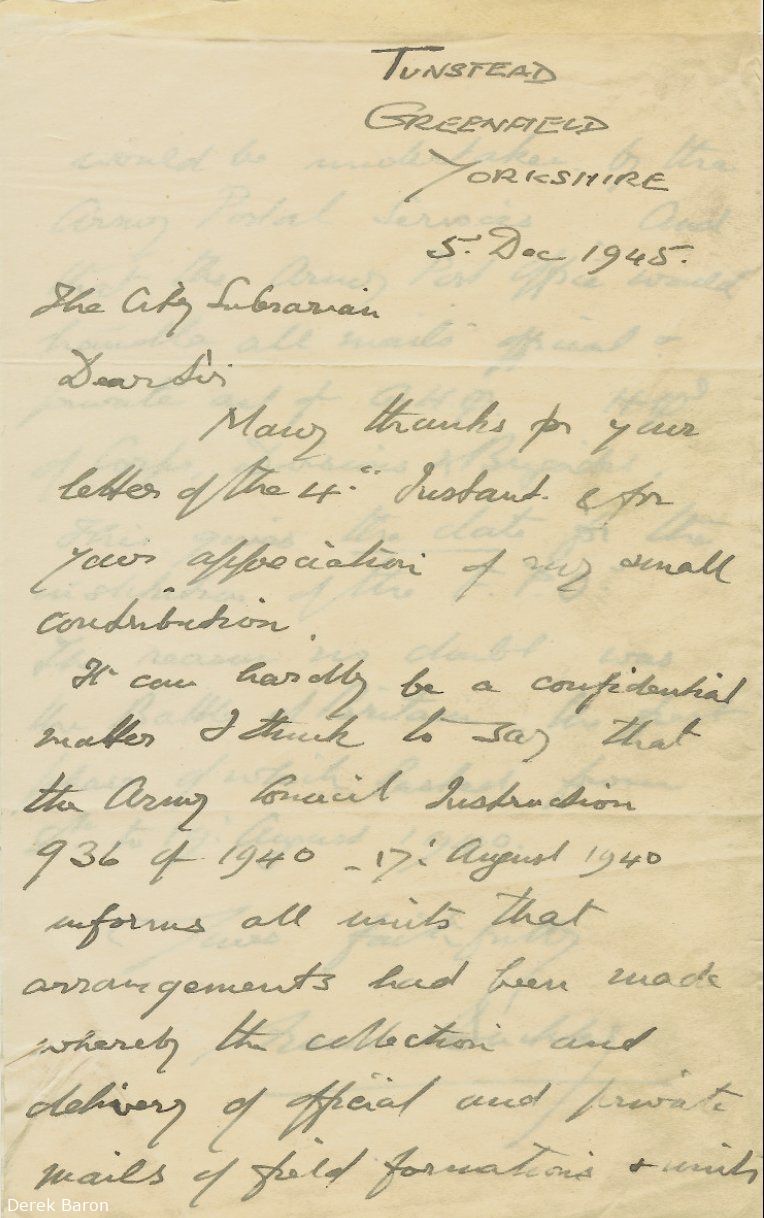 TUNSTEAD
GREENFIELD
YORKSHIRE
5. Dec 1945.
The City Librarian
Dear Sir
Many thanks for your
letter of the 4th Instant. & for
your appreciation of my small
contribution.
It can hardly be a confidential
matter I think to say that
the Army Council Instruction
936 of 1940 - 17th August 1940
informs all units that
arrangements had been made
whereby the collection and
delivery of official and private
mails of field formations & units
Derek Baron